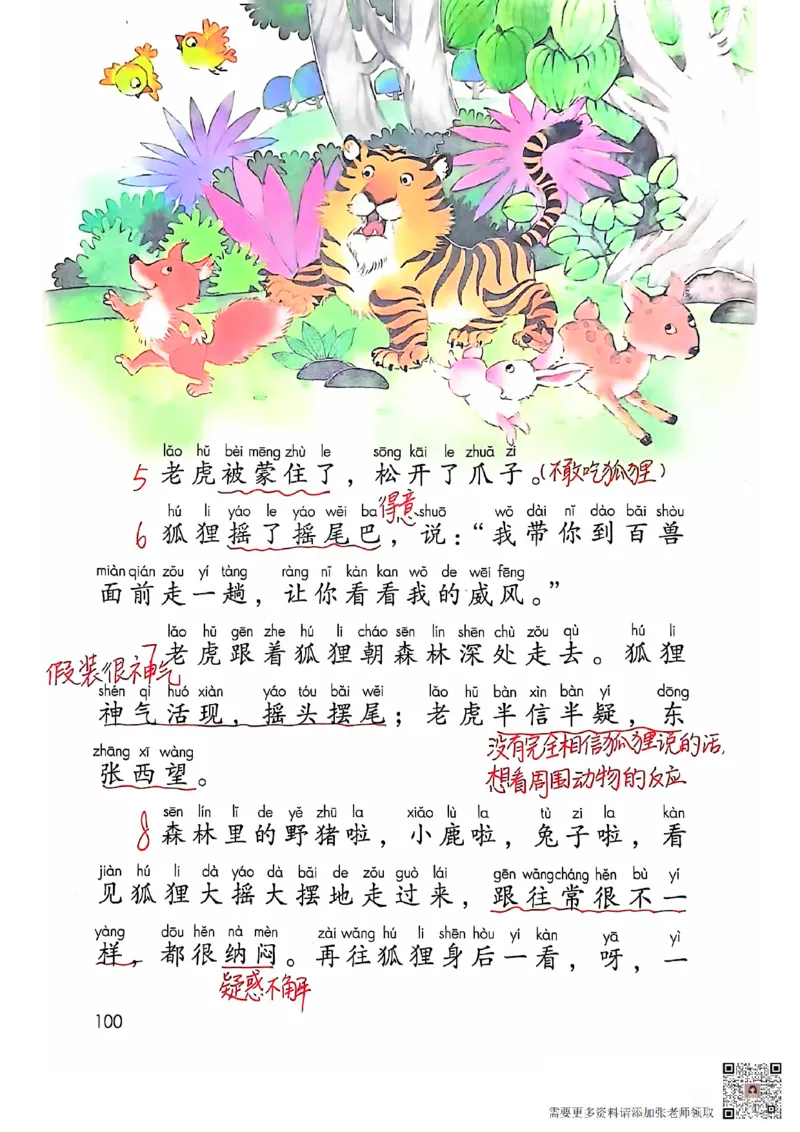 lǎo hǔ bèi mēng zhù le sōng kāi le zhuǎ zi
5 老虎被蒙住了，松开了爪子。(不敢吃狐狸)
得意
hú li yáo le yáo wěi ba shuō wǒ dài nǐ dào bǎi shòu
6 狐狸摇了摇尾巴，说：“我带你到百兽
miàn qián zǒu yí tàng ràng nǐ kàn kan wǒ de wēi fēng
面前走一趟，让你看看我的威风。”
lǎo hǔ gēn zhe hú li cháo sēn lín shēn chù zǒu qù hú li
7 老虎跟着狐狸朝森林深处走去。狐狸
假装很神气
shén qì huó xiàn yáo tóu bǎi wěi lǎo hǔ bàn xìn bàn yí dōng
神气活现，摇头摆尾；老虎半信半疑，东
zhāng xī wàng
张西望。
没有完全相信狐狸说的话，
想看周围动物的反应
sēn lín lǐ de yě zhū la xiǎo lù la tù zi la kàn
8 森林里的野猪啦，小鹿啦，兔子啦，看
jiàn hú li dà yáo dà bǎi de zǒu guò lái gēn wǎng cháng hěn bù yí
见狐狸大摇大摆地走过来，跟往常很不一
yàng dōu hěn nà mèn zài wǎng hú li shēn hòu yí kàn yā yì
样，都很纳闷。再往狐狸身后一看，呀，一
疑惑不解
100
需要更多资料请添加张老师领取